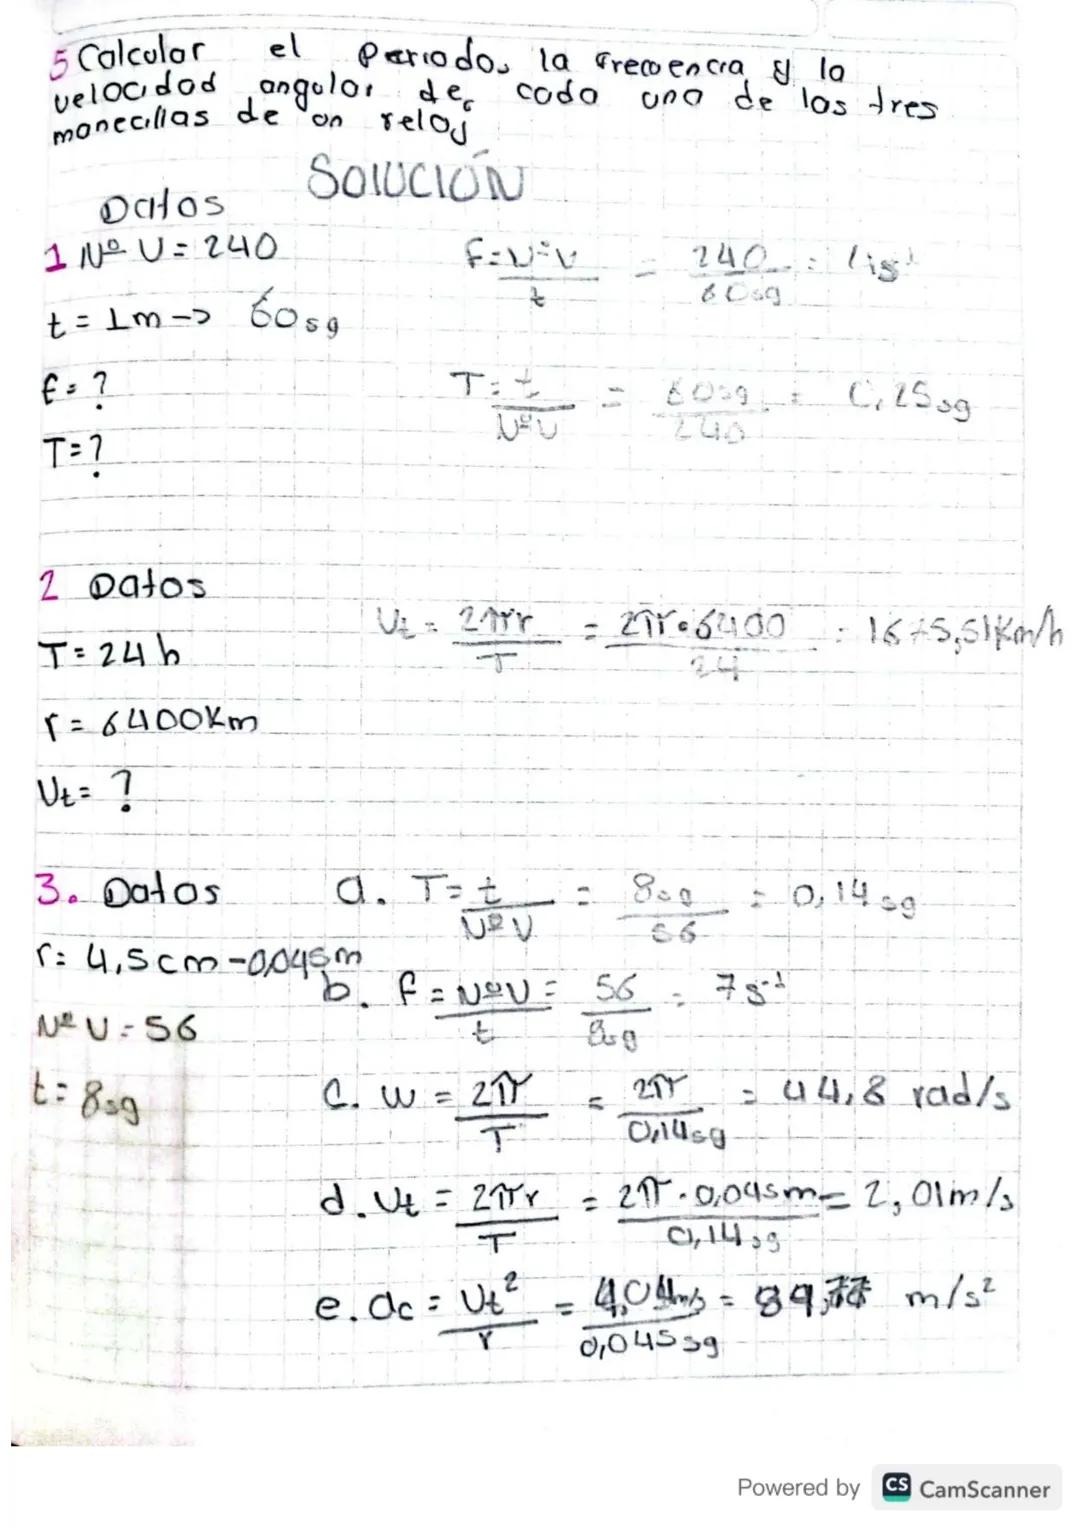 5 Calcular el periodo, la frecuencia y la
velocidad angular de cada una de las tres
manecillas de un reloj
SOLUCIÓN
Datos
1 Nº V = 240
f = Nº V / t = 240 / 60sg = 4 s⁻¹
t = 1m -> 60sg
f = ?
T = t / Nº V = 60sg / 240 = 0,25sg
T = ?
2 Datos
Vt = 2πr / T = 2π·6400 / 24 = 1675,51Km/h
T = 24h
r = 6400Km
Vt = ?
3. Datos
a. T = t / Nº V = 8sg / 56 = 0,14sg
r = 4,5cm - 0,045m
b. f = Nº V / t = 56 / 8sg = 7s⁻¹
Nº V = 56
t = 8sg
c. w = 2π / T = 2π / 0,14sg = 44,8 rad/s
d. Vt = 2πr / T = 2π·0,045m / 0,14sg = 2,01m/s
e. ac = Vt² / r = 4,04m/s / 0,045sg = m/s²
Powered by CS CamScanner